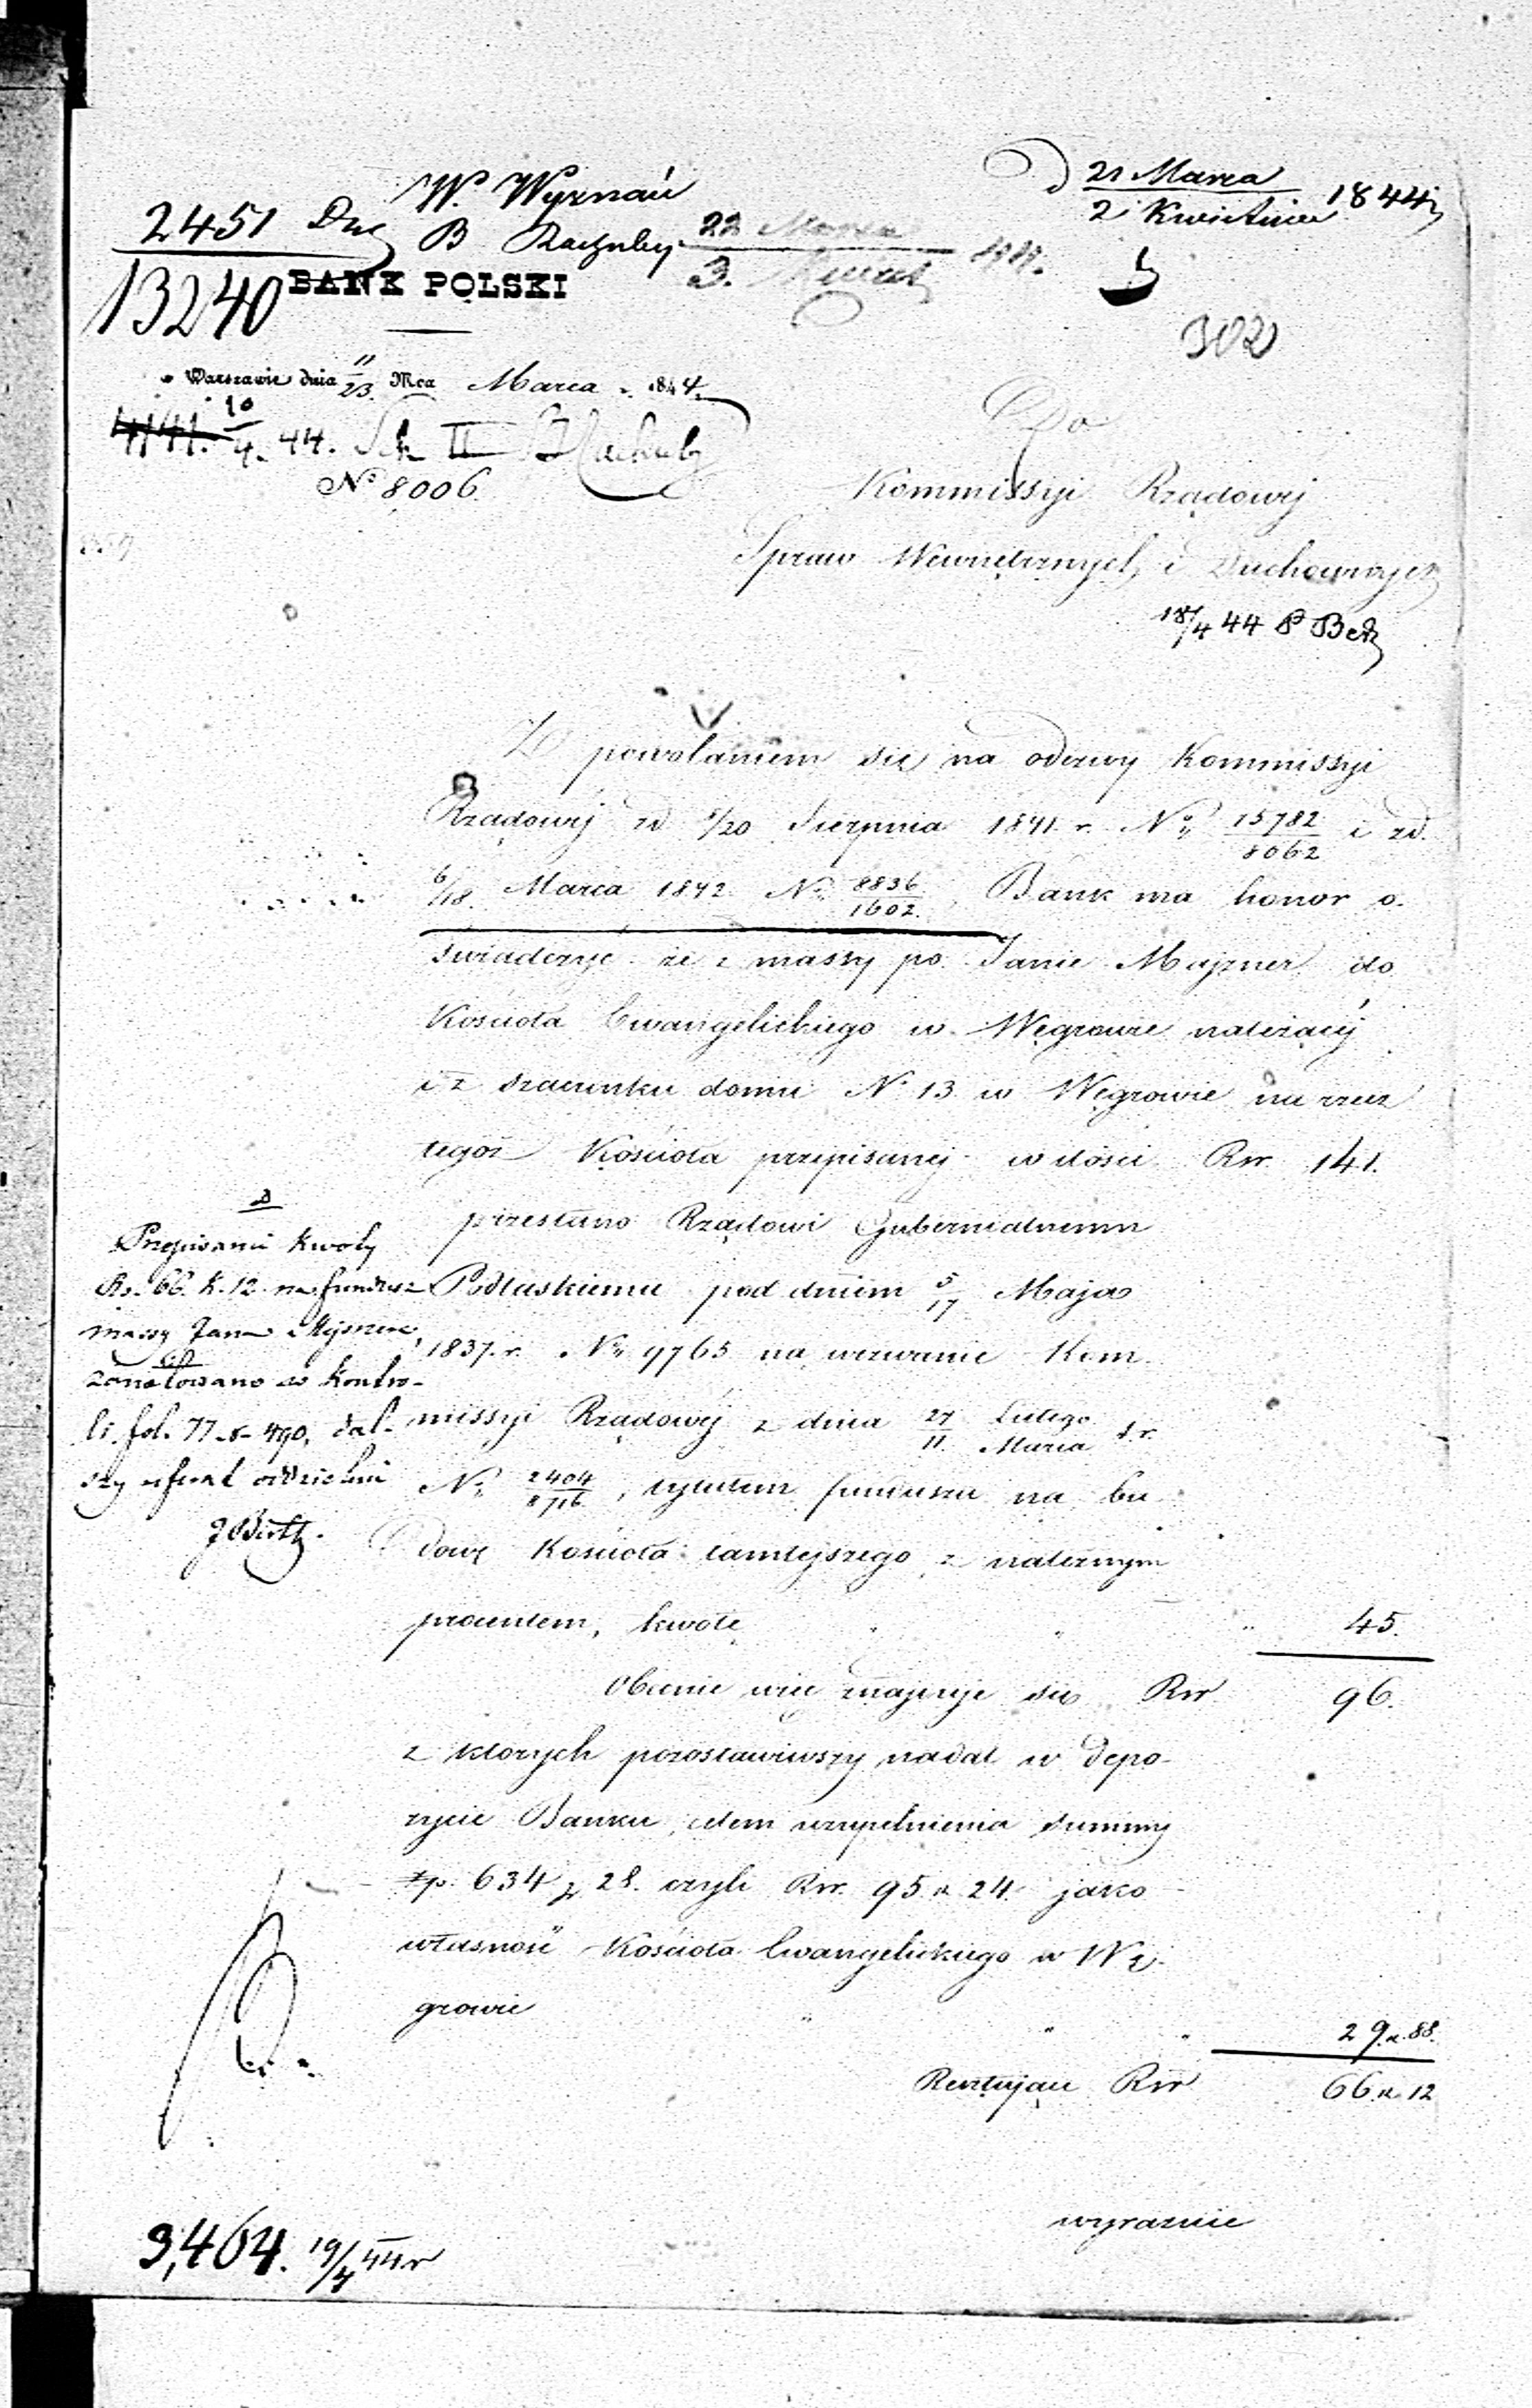 W. Wyznań
2451 Duc
13240
B Rachuby
22 Marca
3. Kwiet
d 21 Marca
2 Kwietnia 1844
BANK POLSKI
302
w Warszawie dnia 11/23. Mca Marca 1844.
4141. 10/4. 44. Sek II
No 8006
Do
Kommissyi Rządowej
Spraw Wewnętrznych i Duchownych
18/4 44
Z powołaniem się na odezwy Kommissyi
Rządowéj zd 8/20 Sierpnia 1841. r. No 15782/8062 i zd.
6/18. Marca 1842 No 8836/1602. Bank ma honor o-
świadczyć że z massy po Janie Majzner do
Kościoła Ewangelickiego w Węgrowie należącéj
i z szacunku domu No 13 w Węgrowie na rzecz
tegoż Kościoła przepisanej w ilości Rsr. 141.
przesłano Rządowi Gubernialnemu
Podlaskiemu pod dniem 5/17 Maja
1837. r. No 9765 na wezwanie Kom
missyi Rządowéj z dnia 27 Lutego/11. Marca t. r.
No 2404/8716, tytułem funduszu na bu
dowę Kościoła tamtejszego z należnym
procentem, kwotę 45.
Obecnie więc znajduje się Rsr 96.
z których pozostawiwszy nadal w depo-
zycie Banku, celem uzupełnienia summy
złp. 634 g 28. czyli Rsr. 95 k 24 jako
własność Kościoła Ewangelickiego w Wę-
growie 29 k. 88.
Restująca Rsr 66 k 12
wyraźnie
Przepisanie kwoty
Rs. 66. k. 12 na fundusz
massy Jana Mejsznera
zanotowano w Kontro-
li fol. 77 & 490, dal-
szy
9,464. 19/4 44 r